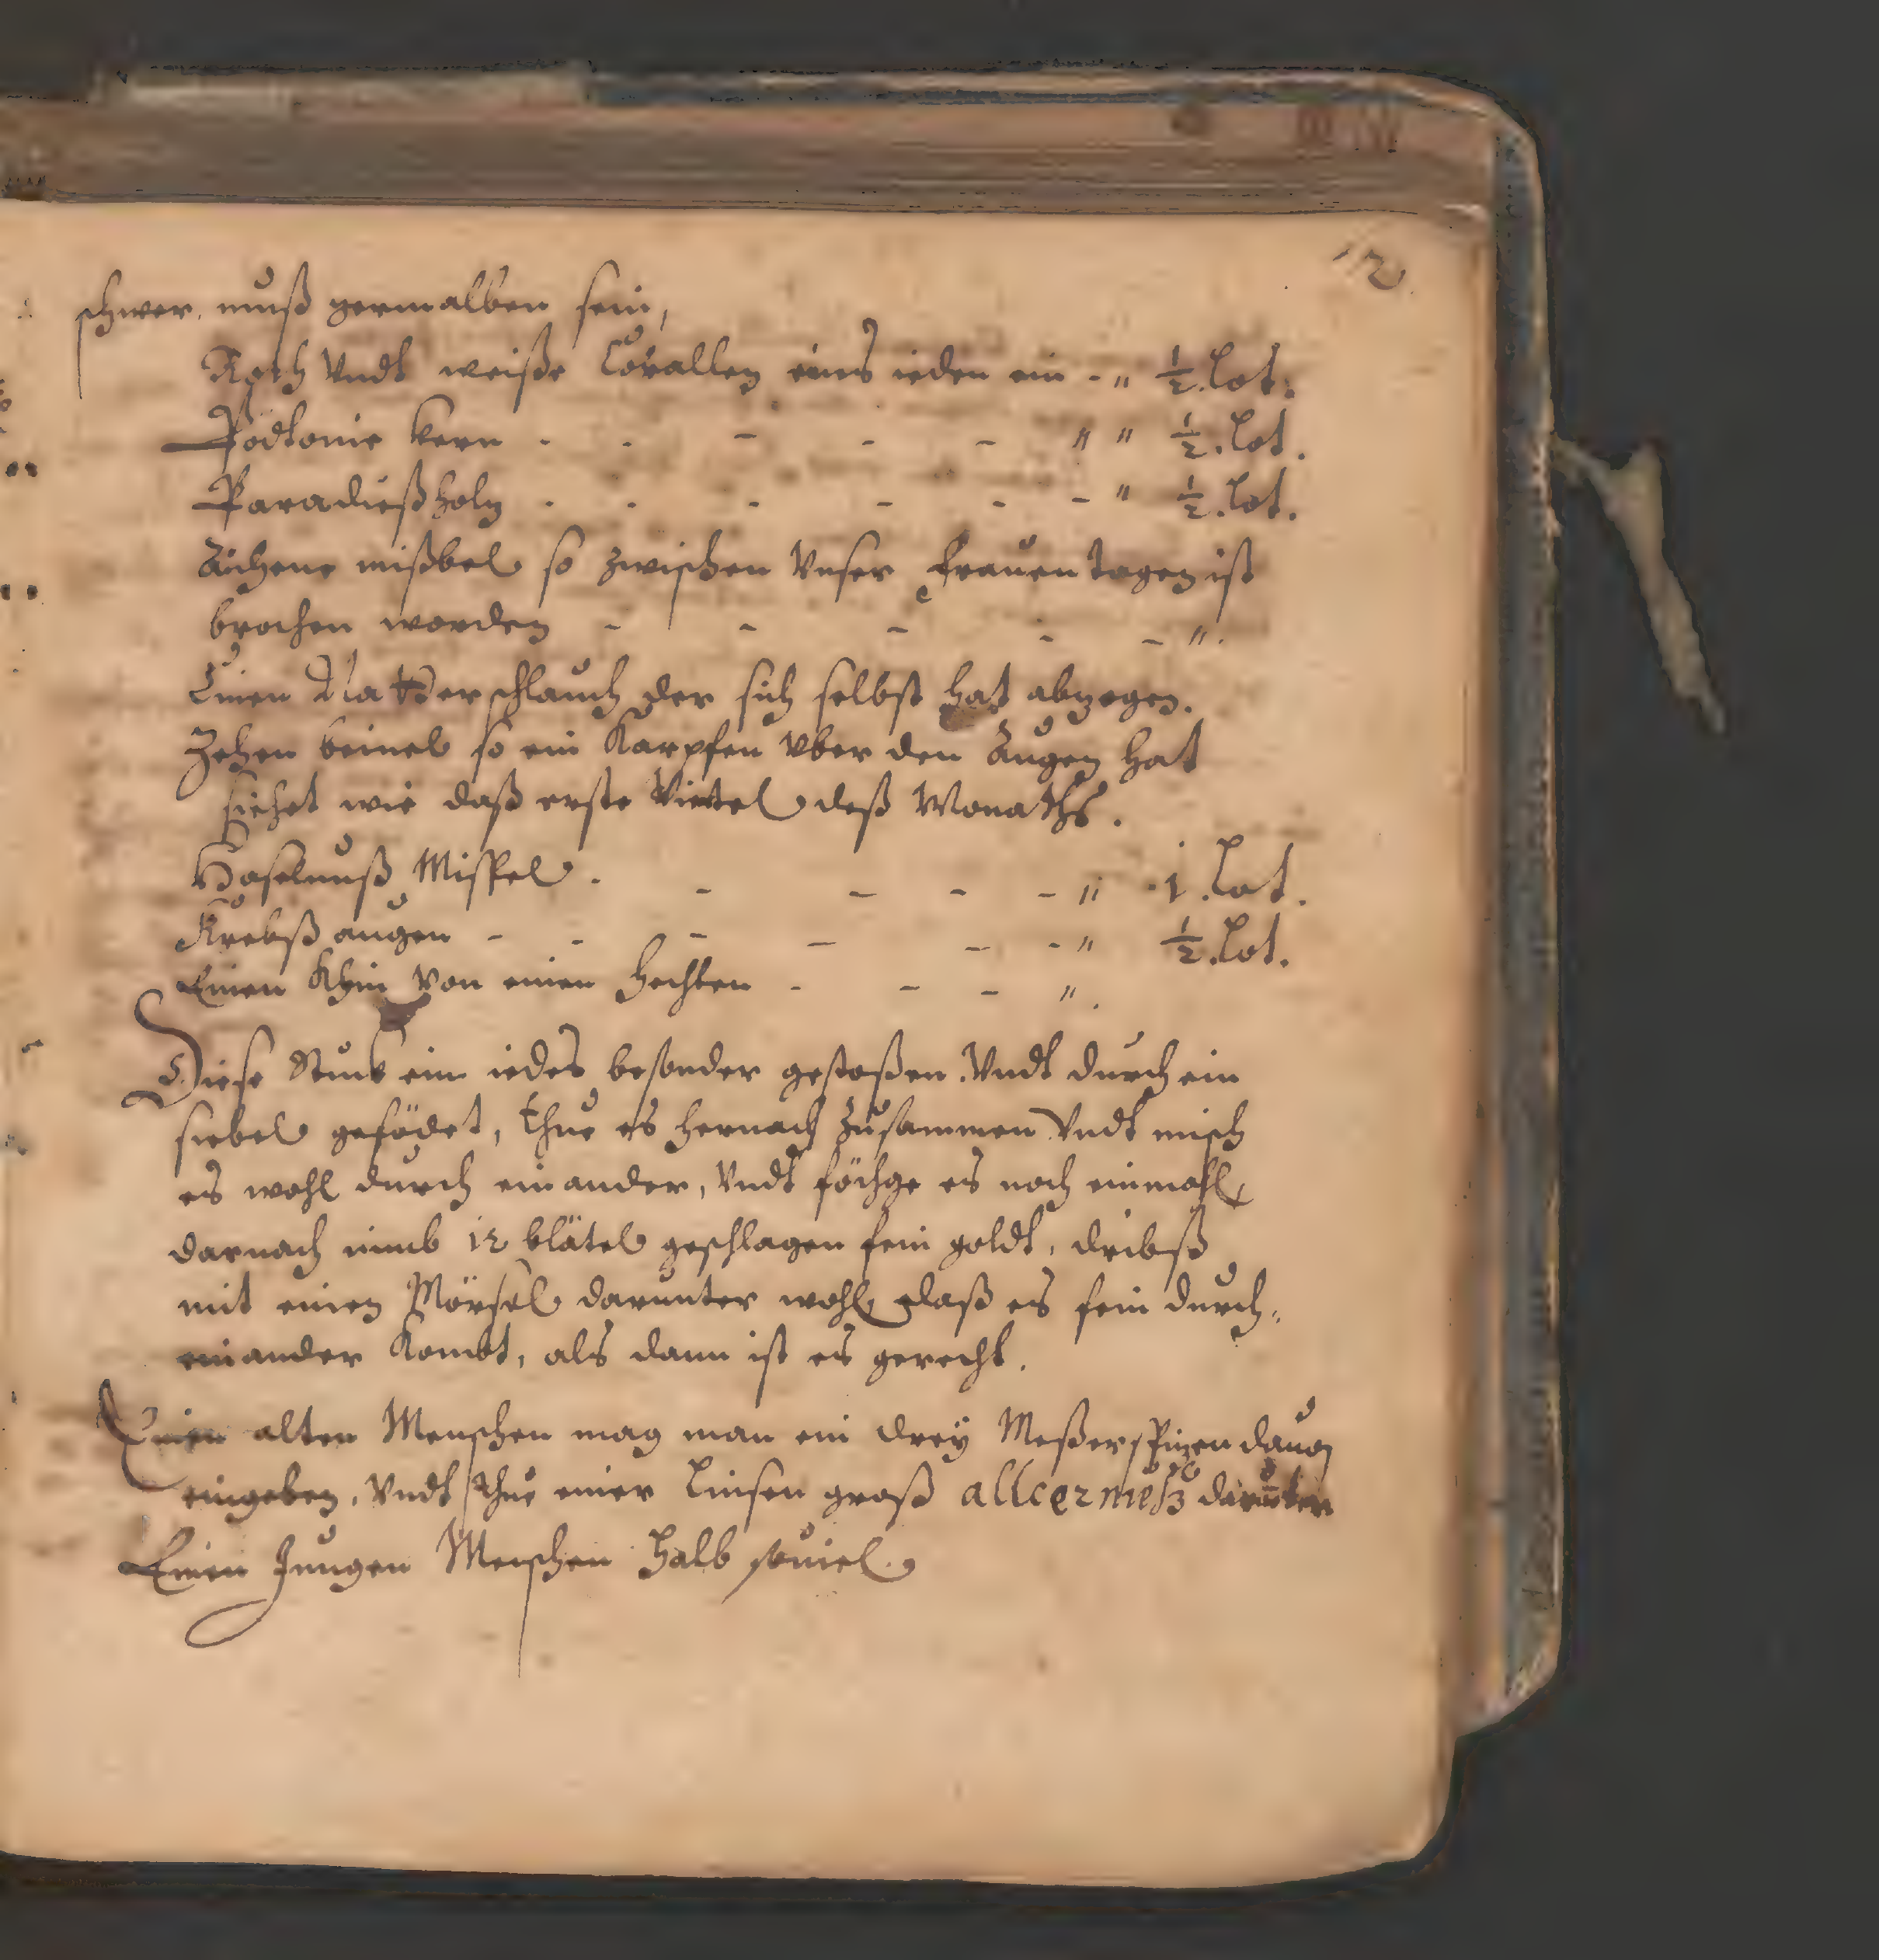 12
schwer, muß zermalben sein,
Roth Vndt weiße Corallen eines ieden ein - " ½. Lot.
Podtonie kern - - - - - " " ½. Lot.
Paradießholz - - - - - - " ½. Lot.
Aichene mißbel so zwischen Vnser frauen tagen ist
brochen worden - - - - - ".
Einen Natterschlauch der sich selbst hat abzogen.
Zehen beinel so ein Karpfen vber den Augen hat
siehet wie daß erste Viertel deß Monaths.
Haselnuß Mispel. - - - - " 1. Lot.
Krebß augen - - - - - - " ½. Lot.
Einen Khin von einen Hechten - - - ".
Diese Stuck ein iedes besonder gestoßen. Vndt durch ein
siebel gefädet, thue es hernach zusammen Vndt misch
es wohl durch einander, Vndt fächge es noch einmahl,
darnach nimb 12 blätel geschlagen fein goldt, dribß
mit einen Mörsel darunter wohl, daß es fein durch-
einander Kombt, als dann ist es gerecht.
Einen alten Menschen mag man ein drey Meßerspizen dauon
eingeben, Vndt thue einer Linsen groß allcermeß darunter
Einen Jungen Menschen halb souiel.